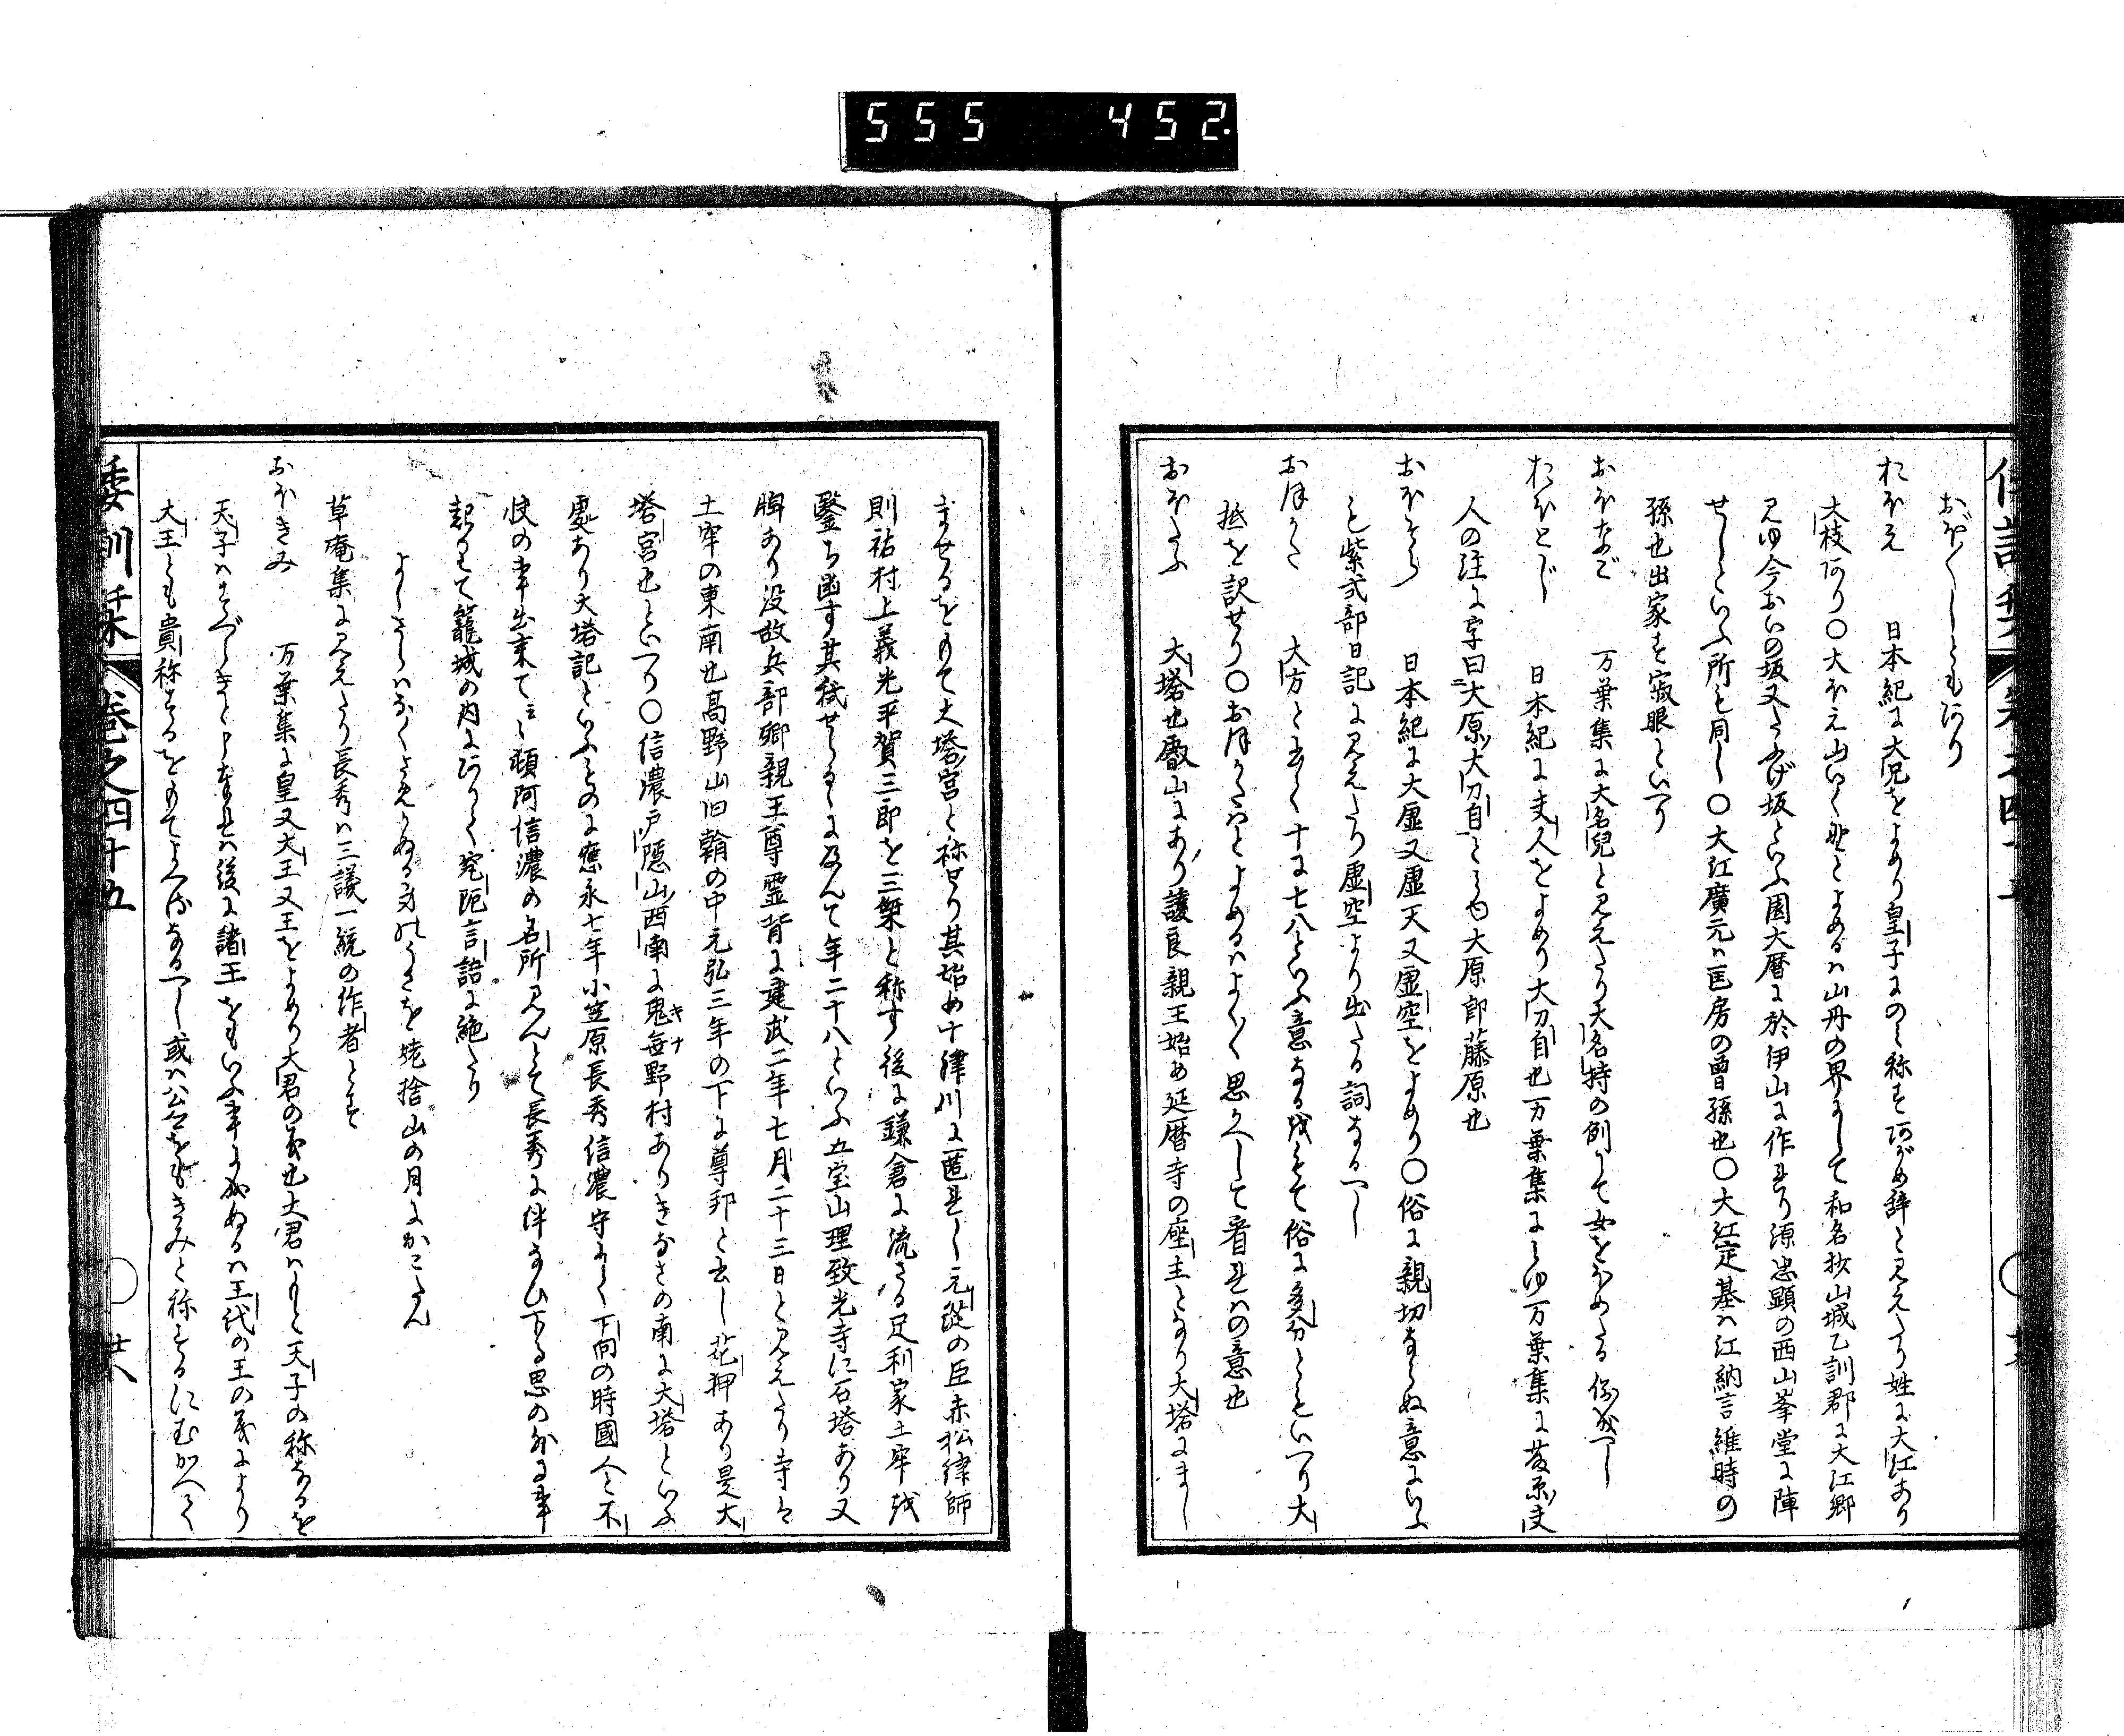 555 452.
おぼ〱しともいへり
おほえ 日本紀に大兄をよめり皇子にのミ称すあがめ辞と見えたり姓に大江あり
大枝同し〇大ほえ山いく野とよめるハ山丹の界にして和名抄山城乙訓郡に大江郷
見ゆ今おいの坂又大江坂といふ園大暦に於伊山に作れり源忠顕の西山峯堂に陣
せしといふ所も同し〇大江廣元ハ匡房の曽孫也〇大江定基ハ江納言維時の
孫也出家を寂眼といへり
おほなご 万葉集に大名兒と見えたり大名持の例にて女をほめたる
おほとじ 日本紀に夫人をよめり大刀自也万葉集に見ゆ万葉集に藤原夫
人の注に字曰大原大刀自とも大原郎藤原也
おほそら 日本紀に大虚又虚天又虚空をよめり〇俗に親切ならぬ意にいふ
も紫式部日記に見えたり虚空より出たる詞なるへし
おほかた 大方と書く十に七八といふ意なる成へて俗に多分ともいへり大
抵を訳せり〇おほかたハとよめるハよく〱思かへして看れはの意也
おほたふ 大塔也叡山にあり護良親王始め延暦寺の座主となり大塔にまし
ませるをもて大塔宮と称せり其始め十津川に匿れし元従の臣赤松律師
則祐村上義光平賀三郎を三傑と称す後に鎌倉に流さる足利家土牢を
鑿ち幽す其弑せらるゝに及んて年二十八といふ五宝山理致光寺に石塔あり又
牌あり没故兵部卿親王尊霊背に建武二年七月二十三日と見えたり寺は
土牢の東南也高野山旧翰の中元弘三年の下に尊邦と書し花押あり是大
塔宮也といへり〇信濃戸隠山西南に鬼無野村ありきなさの南に大塔といふ
處あり大塔記といふものに應永七年小笠原長秀信濃守なりし下向の時國人と不
快の事出来て云々頓阿信濃の名所見んとて長秀に伴なひ下る思の外に事
起りて籠城の内にありし窂阨言語に絶たり
よしさらハなくさめかぬる身のうさを姨捨山の月にかこたん
草庵集に見えたり長秀ハ三議一統の作者とそ
おほきみ 万葉集に皇又大王又王をよめり大君の義也大君ハもと天子の称なるを
天子ハすべらきと申奉れハ後に諸王をもいふ事になりぬるハ王代の王の義により
大王とも貴称するをもてよへるなるへし或ハ公をもきみと称するにむかへて
倭訓栞 巻之四十五 〇 廿八